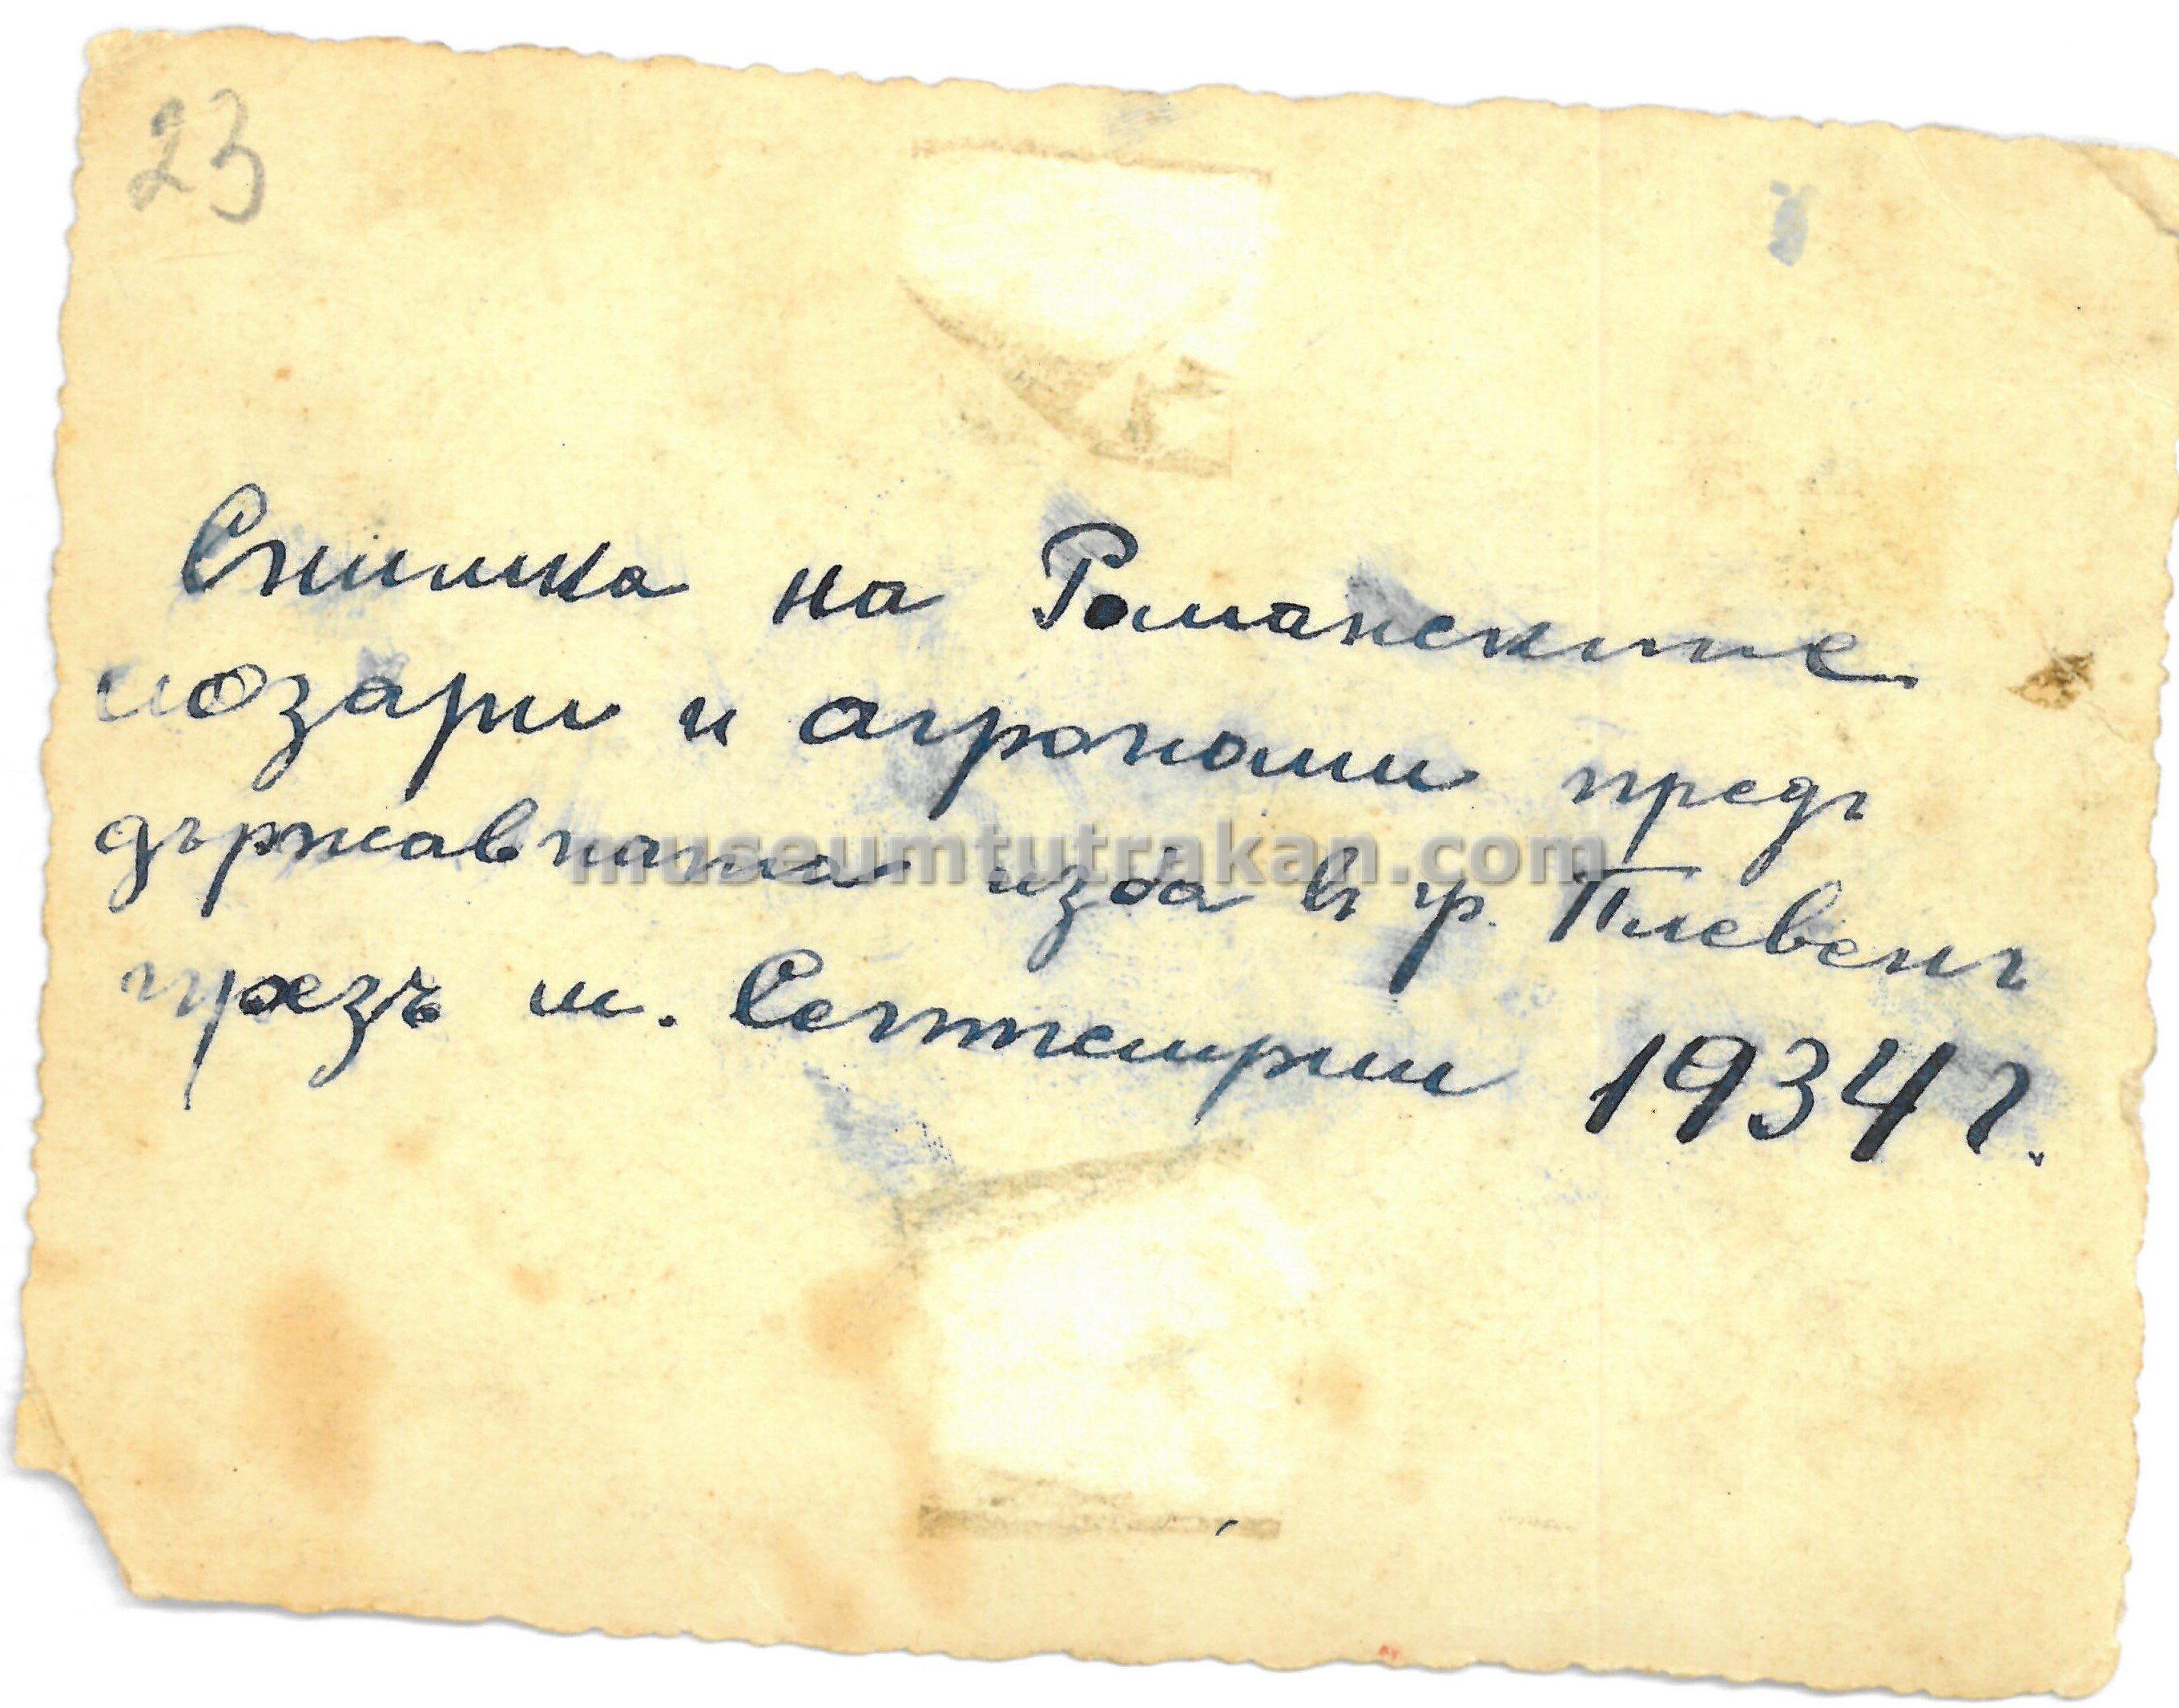 23
Снимка на Романските
лозари и агрономи предъ
държавната изба въ гр. Плевенъ
презъ м. Септемрии 1934 г.
museumtutrakan.com